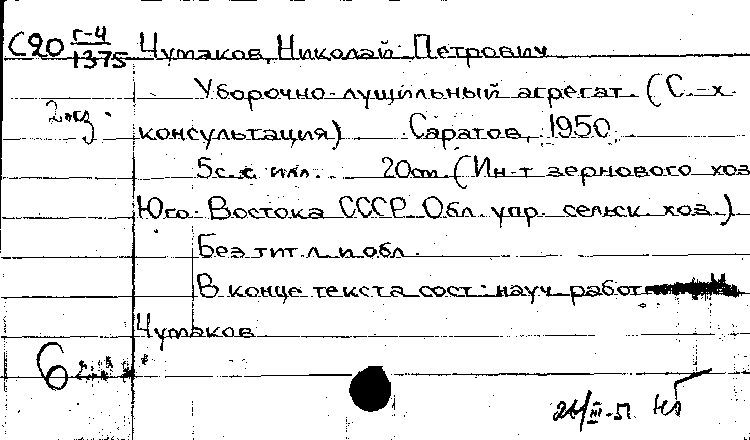 С20 Г-4/1375 Чумаков, Николай Петрович
Уборочно-лущильный агрегат. (С.-х.
2 экз. консультация) Саратов, 1950.
5 с. с илл. 20 см. (Ин-т зернового хоз
Юго-Востока СССР. Обл. упр. сельск. хоз.)
Без тит. л. и обл.
В конце текста сост: науч. работ
Чумаков
6
26/III-51